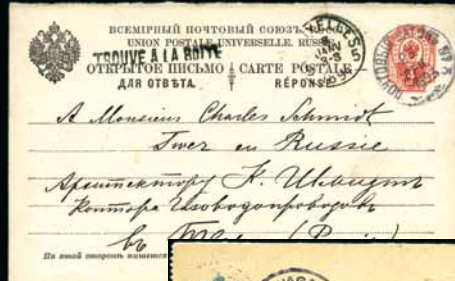 ВСЕМІРНЫЙ ПОЧТОВЫЙ СОЮЗЪ.
UNION POSTALE UNIVERSELLE. RUSSIE
TROUVÉ A LA BOITE
ОТКРЫТОЕ ПИСЬМО CARTE POSTALE
ДЛЯ ОТВѢТА. RÉPONSE
A Monsieur Charles Schmidt
Twer en Russie
Архитектору К. Шмидт
Контора Газоводопроводовъ
въ
На этой сторонѣ пишется